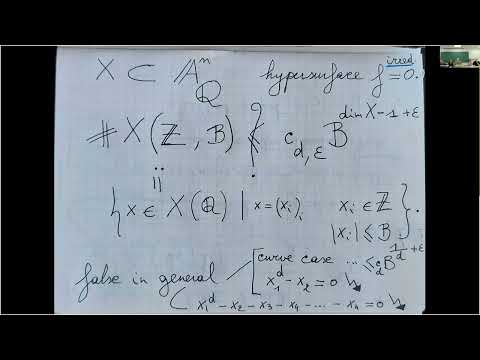 X ⊂ 𝔸ⁿ_ℚ   hypersurface f = 0. irred
# X(ℤ, B) ≤? c_{d,ε} B^{dim X - 1 + ε}
{ x ∈ X(ℚ) | x = (x_i)_i   x_i ∈ ℤ |x_i| ≤ B }.
false in general
curve case ... ≤ c_d B^{1/d + ε}
x_1^d - x_2 = 0
x_1^d - x_2 - x_3 - x_4 - ... - x_n = 0